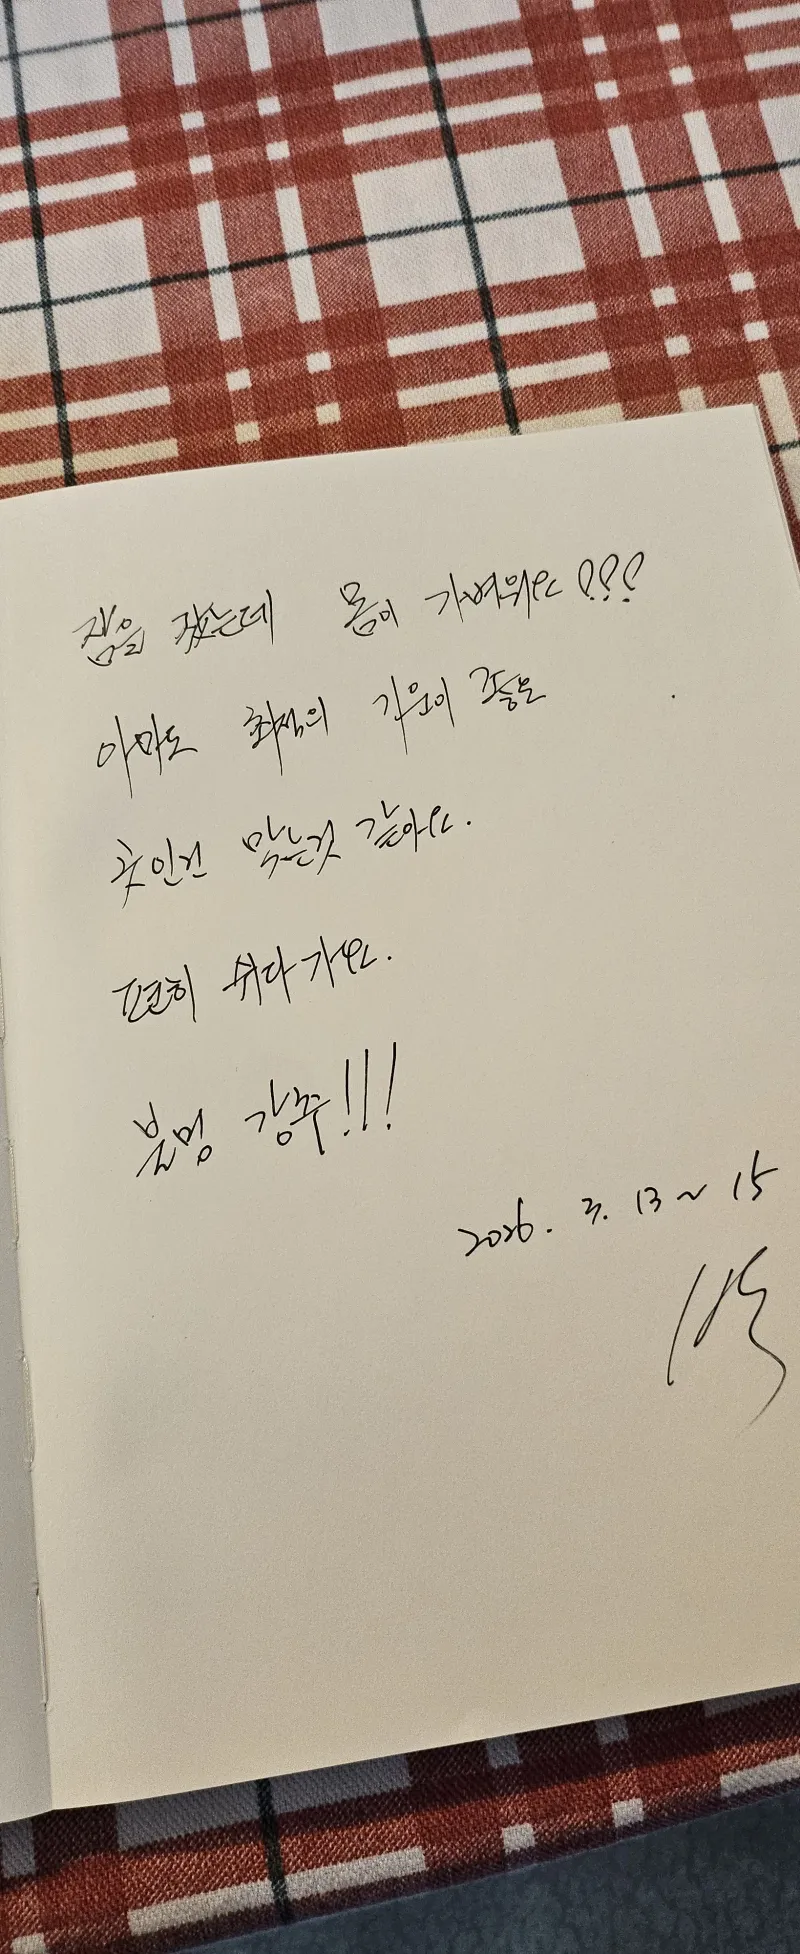 잠을 잤는데 몸이 가벼워요???
아마도 최적의 기운이 좋은
곳인건 맞는것 같아요.
편히 쉬다가요.
불멍 강추!!!
2026. 3. 13 ~ 15